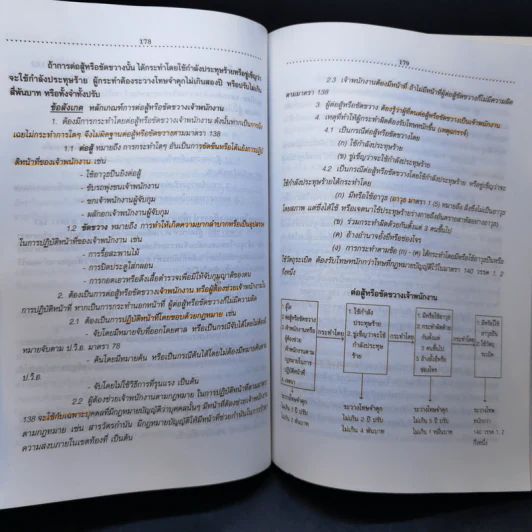 178
ถ้าการต่อสู้หรือขัดขวางนั้น ได้กระทำโดยใช้กำลังประทุษร้ายหรือขู่เข็ญว่า
จะใช้กำลังประทุษร้าย ผู้กระทำต้องระวางโทษจำคุกไม่เกินสองปี หรือปรับไม่เกิน
สี่พันบาท หรือทั้งจำทั้งปรับ
ข้อสังเกต หลักเกณฑ์การต่อสู้หรือขัดขวางเจ้าพนักงาน
1. ต้องมีการกระทำโดยต่อสู้หรือขัดขวางเจ้าพนักงาน ดังนั้นหากเป็นการนิ่ง
เฉยไม่กระทำการใดๆ จึงไม่ผิดฐานต่อสู้หรือขัดขวางตามมาตรา 138
1.1 ต่อสู้ หมายถึง การกระทำใดๆ อันเป็นการขัดขืนหรือโต้แย้งการปฏิบั
ติหน้าที่ของเจ้าพนักงาน เช่น
- ใช้อาวุธปืนยิงต่อสู้
- ขับรถพุ่งชนเจ้าพนักงาน
- ชกเจ้าพนักงานผู้จับกุม
- ผลักอกเจ้าพนักงานผู้จับกุม
1.2 ขัดขวาง หมายถึง การทำให้เกิดความยากลำบากหรือเป็นอุปสรรค
ในการปฏิบัติหน้าที่ของเจ้าพนักงาน เช่น
- การรื้อสะพานไม้
- การปิดประตูใส่กลอน
- การกอดเอวหรือดึงเสื้อตำรวจเพื่อมิให้จับกุมญาติของตน
2. ต้องเป็นการต่อสู้หรือขัดขวางเจ้าพนักงาน หรือผู้ต้องช่วยเจ้าพนักงานใน
การปฏิบัติหน้าที่ หากเป็นการกระทำนอกหน้าที่ ผู้ต่อสู้หรือขัดขวางก็ไม่มีความผิด
2.1 ต้องเป็นการปฏิบัติหน้าที่โดยชอบด้วยกฎหมาย เช่น
- จับโดยมีหมายจับที่ออกโดยศาล หรือเป็นกรณีจับได้โดยไม่ต้องมี
หมายจับตาม ป.วิ.อ. มาตรา 78
- ค้นโดยมีหมายค้น หรือเป็นกรณีค้นได้โดยไม่ต้องมีหมายค้นตาม
ป.วิ.อ.
- จับโดยไม่ใช้วิธีการที่รุนแรง เป็นต้น
2.2 ผู้ต้องช่วยเจ้าพนักงานตามกฎหมาย ในการปฏิบัติหน้าที่ตามมาตรา
138 จะใช้กับเฉพาะบุคคลที่มีกฎหมายบัญญัติว่าบุคคลนั้นๆ มีหน้าที่ต้องช่วยเจ้าพนักงาน
ตามกฎหมาย เช่น สารวัตรกำนัน มีกฎหมายบัญญัติให้มีหน้าที่ช่วยกำนันในการรักษา
ความสงบภายในเขตท้องที่ เป็นต้น
179
2.3 เจ้าพนักงานต้องมีหน้าที่ ถ้าไม่มีหน้าที่ผู้ต่อสู้ขัดขวางก็ไม่มีความผิด
ตามมาตรา 138
3. ผู้ต่อสู้หรือขัดขวาง ต้องรู้ว่าผู้ที่ตนต่อสู้หรือขัดขวางเป็นเจ้าพนักงาน
4. เหตุที่ทำให้ผู้กระทำผิดต้องรับโทษหนักขึ้น (เหตุฉกรรจ์)
4.1 เป็นกรณีต่อสู้หรือขัดขวางโดย
(ก) ใช้กำลังประทุษร้าย
(ข) ขู่เข็ญว่าจะใช้กำลังประทุษร้าย
4.2 เป็นกรณีต่อสู้หรือขัดขวางโดยใช้กำลังประทุษร้าย หรือขู่เข็ญว่าจะ
ใช้กำลังประทุษร้ายได้กระทำโดย
(ก) มีหรือใช้อาวุธ (อาวุธ มาตรา 1 (5) หมายถึง
โดยสภาพ แต่ซึ่งได้ใช้
(ข) ร่วมกระทำผิดด้วยกันตั้งแต่ 3 คนขึ้นไป
(ค) อ้างอำนาจอั้งยี่หรือซ่องโจร
(ง) การกระทำตามข้อ (ก) - (ค) ได้กระทำโดยมีหรือใช้ปืนหรือ
วัตถุระเบิด ต้องรับโทษหนักกว่าโทษที่กฎหมายบัญญัติไว้ในมาตรา 140 วรรค 1, 2
กึ่งหนึ่ง
ต่อสู้หรือขัดขวางเจ้าพนักงาน
1. ใช้กำลัง
ประทุษร้าย
2. ขู่เข็ญว่าจะใช้
กำลังประทุษ
ร้าย
กระทำโดย
1. มีหรือใช้อาวุธ
2. กระทำผิดด้วย
กันตั้งแต่
3 คนขึ้นไป
3. อ้างอั้งยี่หรือ
ซ่องโจร
กระทำโดย
ระวางโทษจำคุก
ไม่เกิน 1 ปี ปรับ
ระวางโทษจำคุก
ไม่เกิน 2 ปี ปรับ
ไม่เกิน 4 พันบาท
ระวางโทษจำคุก
ไม่เกิน 5 ปี ปรับ
ไม่เกิน 1 หมื่นบาท
ระวางโทษ
หนักกว่า
140 วรรค 1, 2
กึ่งหนึ่ง